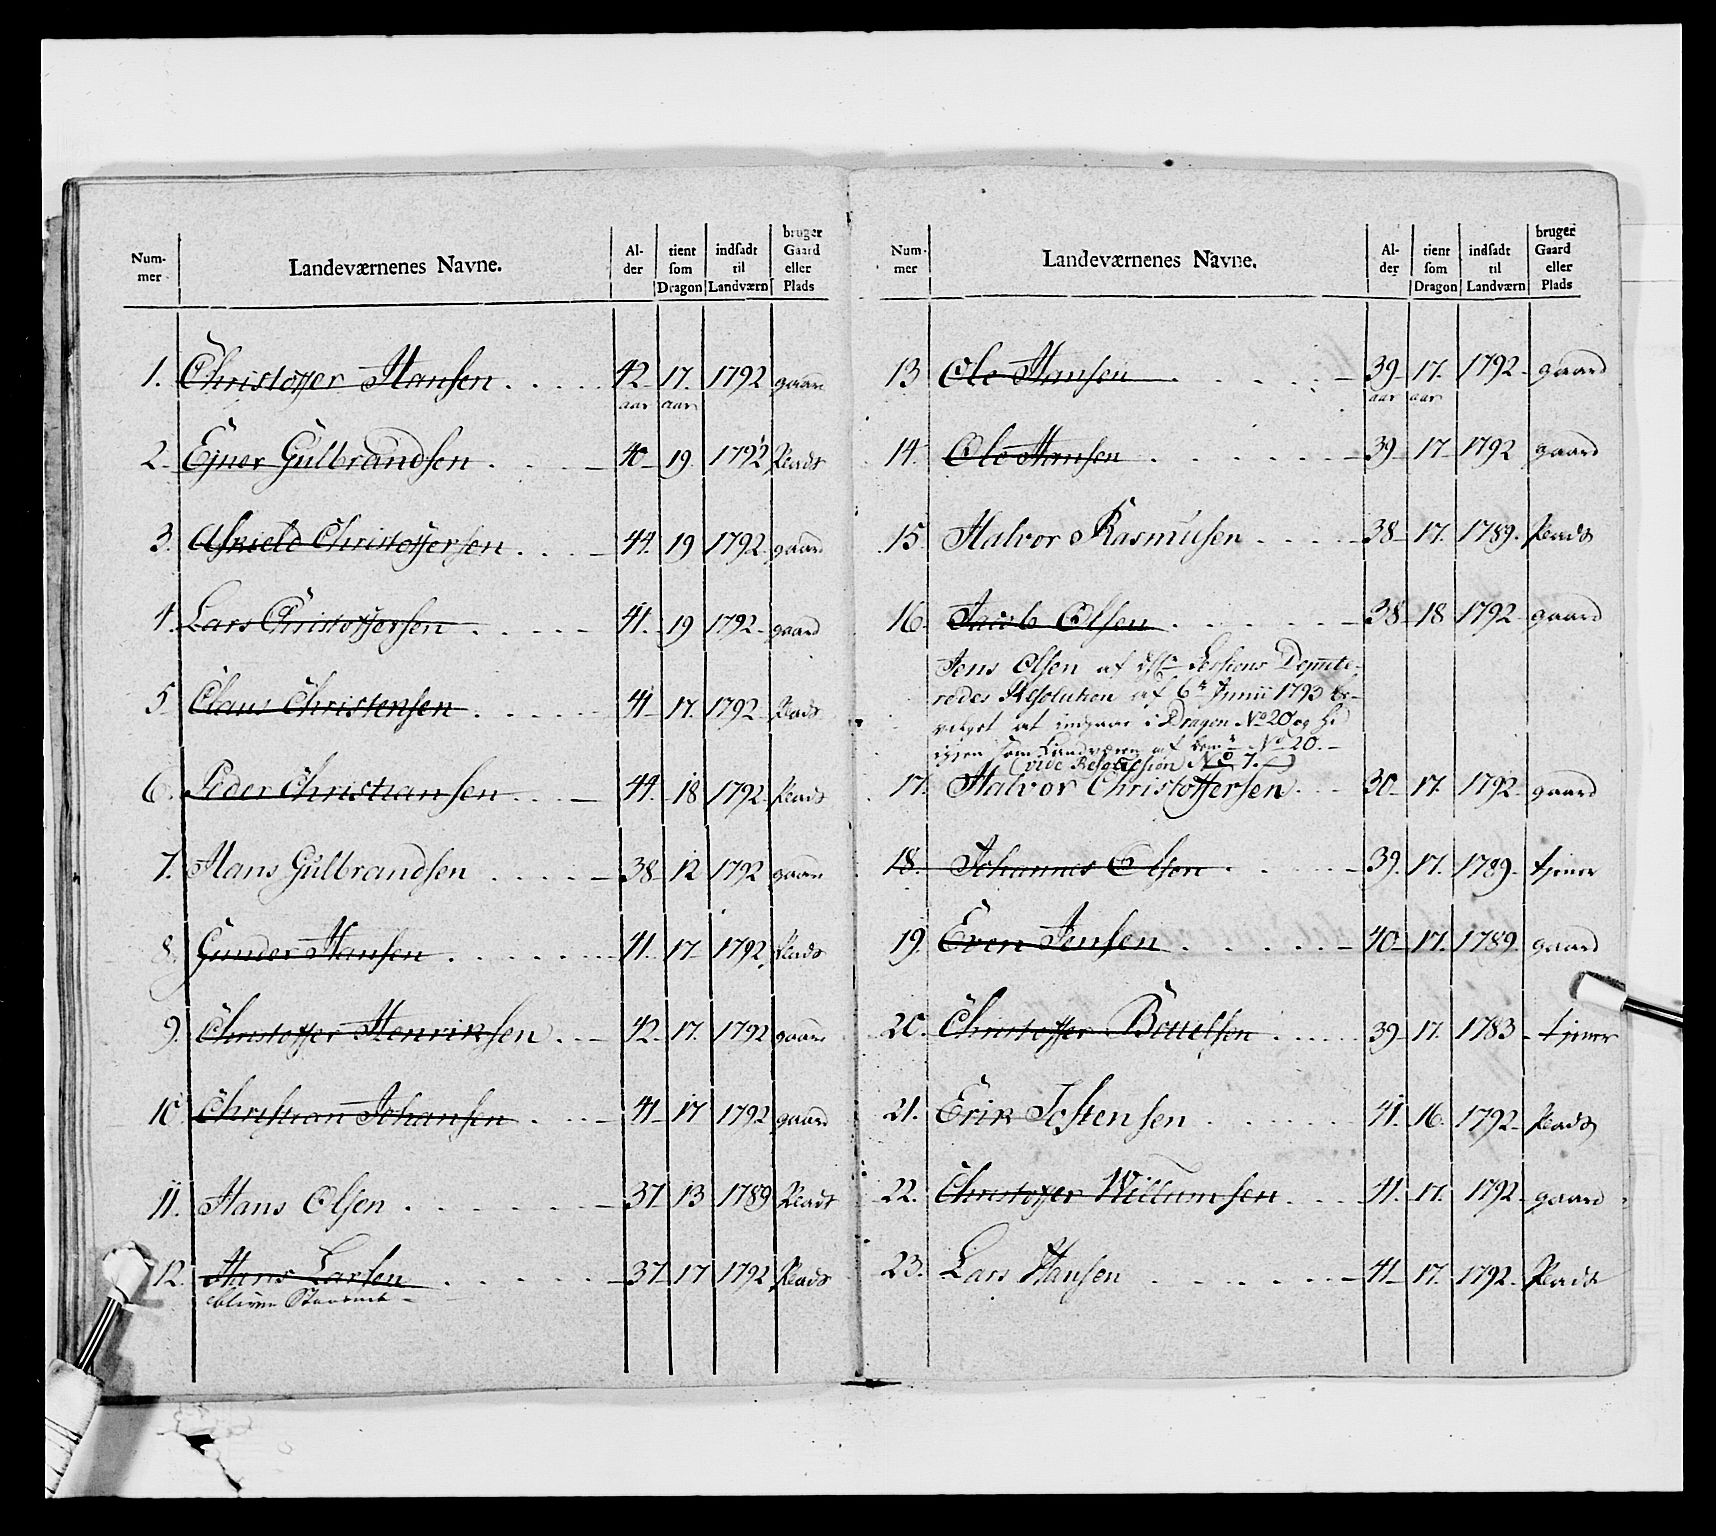 Num-
mer
Landeværnenes Navne.
Al-
der
tient
som
Dragon
indsadt
til
Landværn
bruger
Gaard
eller
Plads
1. Christoffer Hansen 42 aar 17. aar 1792 gaard
2. Ejner Gulbrandsen 40 19 1792 Plads
3. Askield Christoffersen 44. 19 1792 gaard
4. Lars Christoffersen 41. 19 1792 gaard
5 Claus Christensen 41 17. 1792 Plads
6. Peder Christiansen 44. 18 1792 Plads
7. Hans Gulbrandsen 38 12 1792 gaard
8. Gunder Hansen 41. 17 1792 Plads
9. Christoffer Henriksen 42. 17. 1792 gaard
10 Christian Johansen 41 17 1792 gaard
11. Hans Olsen 37 13 1789 Plads
12. Hans Larsen 37 17 1792 Plads
Num-
mer
Landeværnenes Navne.
Al-
der
tient
som
Dragon
indsadt
til
Landværn
bruger
Gaard
eller
Plads
13 Ole Hansen 39 aar 17. aar 1792 gaard
14. Ole Hansen 39 17 1792 gaard
15. Halvor Rasmusen 38 17. 1789. Plads
16. Jacob Olsen 38 18 1792 gaard
Jens Olsen af Sessions Depute-
redes Resolution af 6te Junii 1793
at indgaae i Dragon No 20 og
som Landværn af No 20.
(vide Resolusion No 7.)
17. Halvor Christoffersen 30 17. 1792 gaard
18. Johannes Olsen 39. 17. 1789 tjener
19. Even Jensen 40 17. 1789 gaard
20. Christoffer Bottelsen 39 17. 1783 tjener
21. Erik Jostensen 41. 16. 1792 Plads
22. Christoffer Willumsen 41. 17. 1792 gaard
23. Lars Hansen 41 17. 1792 Plads